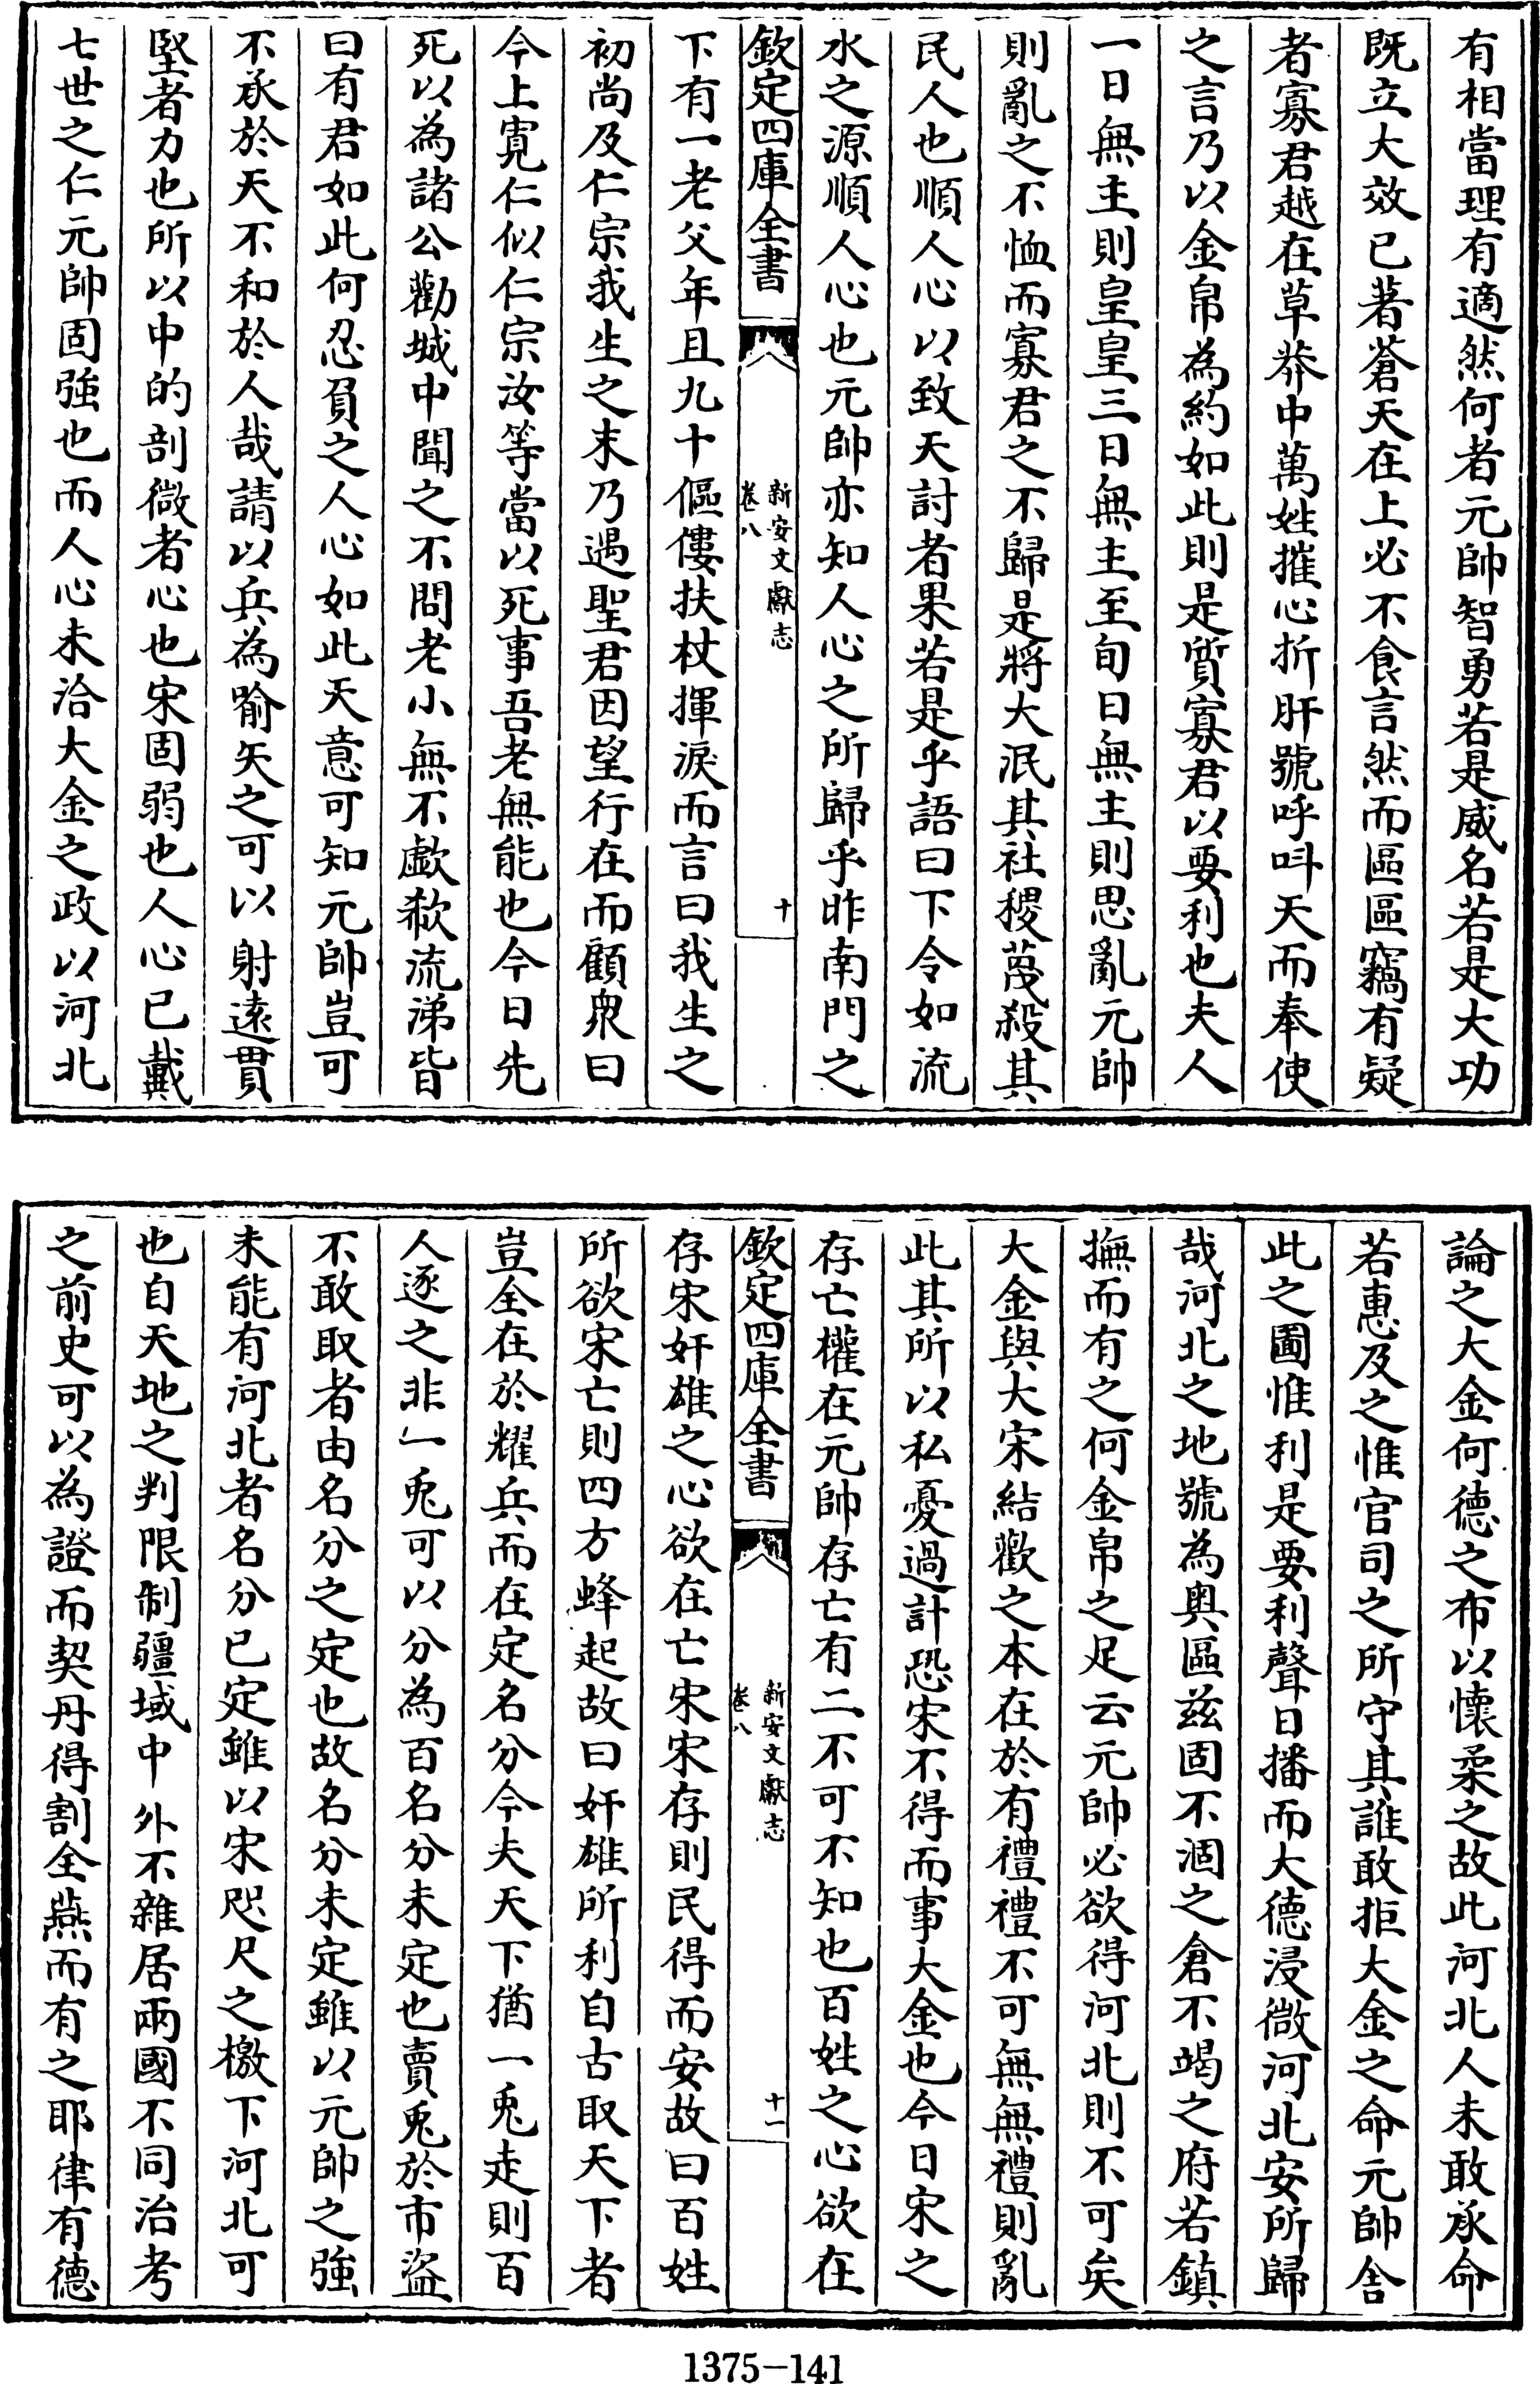 有相當理有適然何者元帥智勇若是威名若是大功
既立大效已著蒼天在上必不食言然而區區竊有疑
者寡君越在草莽中萬姓摧心折肝號呼呌天而奉使
之言乃以金帛為約如此則是質寡君以要利也夫人
一日無主則皇皇三日無主至旬日無主則思亂元帥
則亂之不恤而寡君之不歸是將大泯其社稷芟殺其
民人也順人心以致天討者果若是乎語曰下令如流
水之源順人心也元帥亦知人心之所歸乎昨南門之
欽定四庫全書
新安文獻志
卷八
十
下有一老父年且九十傴僂扶杖揮淚而言曰我生之
初尚及仁宗我生之末乃遇聖君因望行在而顧衆曰
今上寛仁似仁宗汝等當以死事吾老無能也今日先
死以為諸公勸城中聞之不問老小無不歔欷流涕皆
曰有君如此何忍負之人心如此天意可知元帥豈可
不承於天不和於人哉請以兵為喻矢之可以射遠貫
堅者力也所以中的剖微者心也宋固弱也人心已戴
七世之仁元帥固強也而人心未洽大金之政以河北
論之大金何德之布以懷柔之故此河北人未敢承命
若惠及之惟官司之所守其誰敢拒大金之命元帥舍
此之圖惟利是要利聲日播而大德浸微河北安所歸
哉河北之地號為奥區兹固不涸之倉不竭之府若鎮
撫而有之何金帛之足云元帥必欲得河北則不可矣
大金與大宋結歡之本在於有禮禮不可無無禮則亂
此其所以私憂過計恐宋不得而事大金也今日宋之
存亡權在元帥存亡有二不可不知也百姓之心欲在
欽定四庫全書
新安文獻志
卷八
十一
存宋奸雄之心欲在亡宋宋存則民得而安故曰百姓
所欲宋亡則四方蜂起故曰奸雄所利自古取天下者
豈全在於耀兵而在定名分今夫天下猶一兎走則百
人逐之非一兎可以分為百名分未定也賣兎於市盜
不敢取者由名分之定也故名分未定雖以元帥之強
未能有河北者名分已定雖以宋咫尺之檄下河北可
也自天地之判限制疆域中外不雜居兩國不同治考
之前史可以為證而契丹得割全燕而有之耶律有德
1375-141